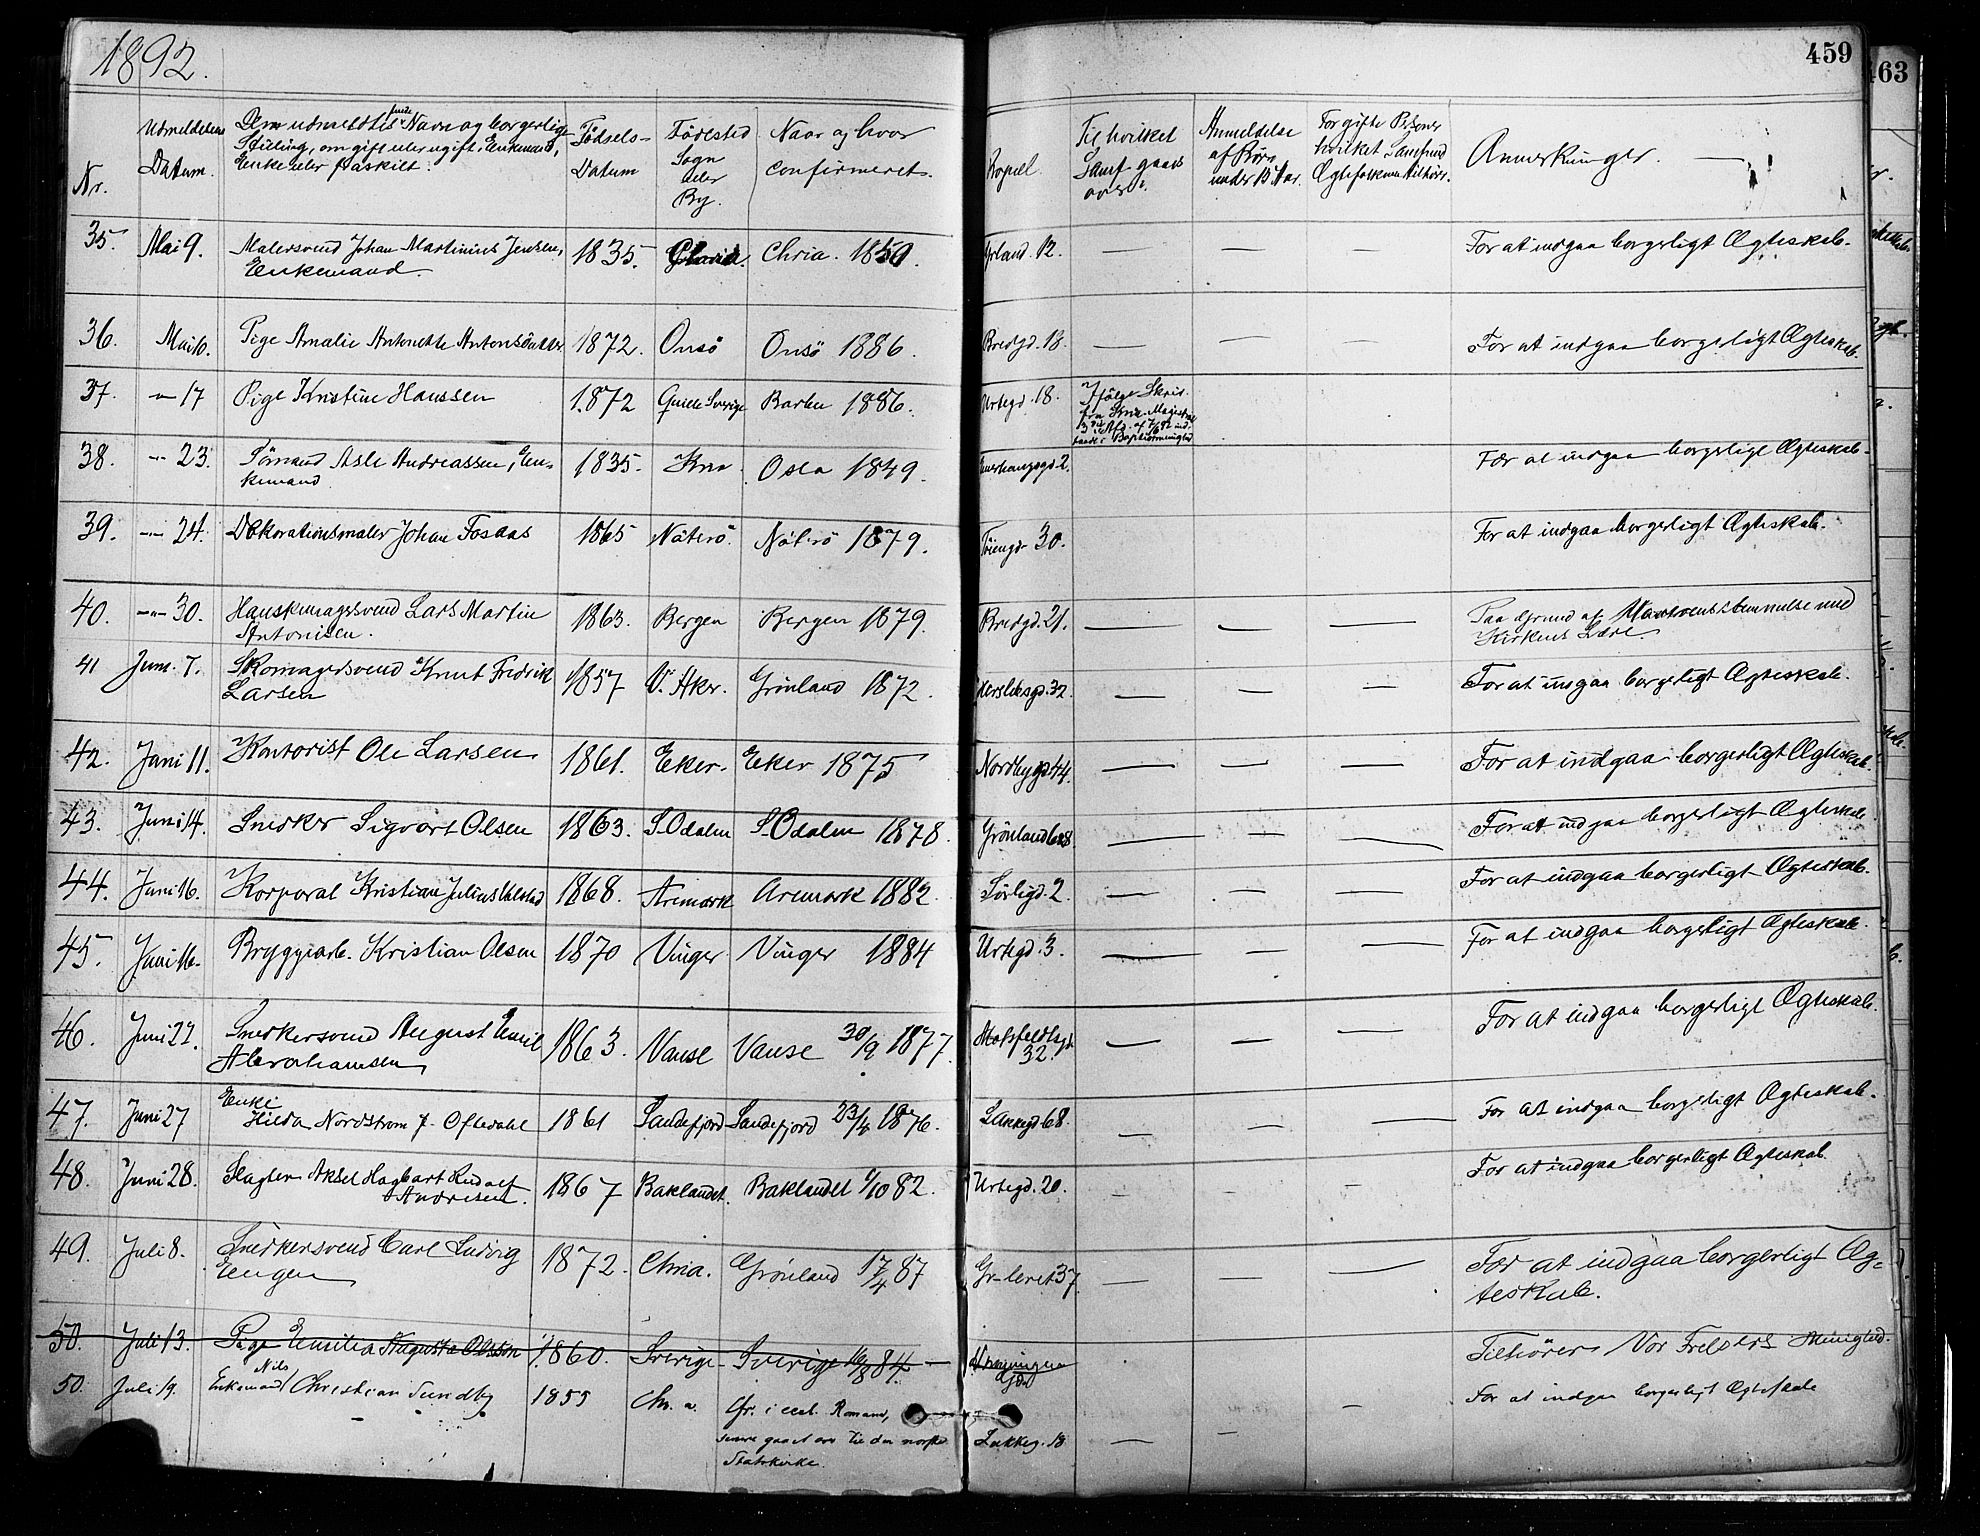 1892.
459
463
Nr.
Udmeldelsens Datum.
Dem udmeldtes fulde Navn og borgerlige Stilling, om gift eller ugift, Enkemand, Enke eller fraskilt.
Fødsels-Datum
Fødested Sogn eller By.
Naar og hvor confirmeret.
Bopæl.
Til hvilket Samf. gaaet over?
Anmeldelse af Børn under 15 Aar.
For gifte Personer hvilket Samfund Ægtefællen tilhører.
Anmerkninger.
35. Mai 9. Malersvend Johan Martinius Jensen, Enkemand. 1835. Chria. 1850. Grland. 12. — — — For at indgaa borgerligt Ægteskab.
36. Mai 10. Pige Amalie Antonette Antonsdatter 1872. Onsö Onsö 1886. Bredgd. 18. — — — For at indgaa borgerligt Ægteskab.
37. -"- 17 Pige Kristine Hanssen 1872 Sverige Barbu 1886. Urtegd. 18. Ifølge Skriv. fra Kria. Magistrat
38. -"- 23. Sömand Asle Andreassen, Enkemand 1835. Kria Oslo 1849. 2. For at indgaa borgerlige Ægteskab.
39. -"- 24. Dekorationsmaler Johan Fosaas 1865 Nöterö. Nöterö 1879. Töiengd. 30. For at indgaa borgerligt Ægteskab.
40. -"- 30. Hanskemagersvend Lars Martin Antonisen. 1863. Bergen Bergen 1879. Bredgd. 21. — — — Paa Grund af Uoverensstemmelse med Kirkens Lære
41 Juni. 7. Skomagersvend Knut Fredrik Larsen 1857 V. Aker. Grönland 1872. Herslebsgd. 32. — — — For at indgaa borgerligt Ægteskab.
42. Juni 11. Kontorist Ole Larsen 1861. Eker. Eker 1875 Nordbygd 44. — — — For at indgaa borgerligt Ægteskab.
43. Juni 14. Snedker Sigvart Olsen 1863. S. Odalen S. Odalen 1878. Grönland — — — For at indgaa borgerligt Ægteskab
44. Juni 16. Korporal Kristian Julius 1868. Aremark Aremark 1882. Sörligd. 2 — — — For at indgaa borgerligt Ægteskab.
45. Juni 16. Bryggeriarb. Kristian Olsen 1870 Vinger Vinger 1884 Urtegd. 3. — — — For at indgaa borgerligt Ægteskab.
46. Juni 22. Snedkersvend August Emil Abrahamsen 1863. Vanse Vanse 30/9 1877. Motzfeldtsgt. 32. — — — For at indgaa borgerligt Ægteskab.
47. Juni 27 Enke Hilda Nordström f. Oftedahl 1861 Sandefjord Sandefjord 23/4 1876. Lakkegd. 68. — — — For at indgaa borgerligt Ægteskab.
48. Juni 28. Slagter Aksel Hagbart Rudolf Andresen. 1867 Baklandet. Baklandet 1/10 82. Urtegd. 20. — — — For at indgaa borgerligt Ægteskab
49. Juli 8. Snedkersvend Carl Ludvig Engen 1872. Chria. Grönland 17/4 87 Gr-leret 37. — — — For at indgaa borgerligt Ægteskab.
50. Juli 13. Pige Emilia Augusta Olsson 1860. Sverige Sverige 84. Tilhörer Vor Frelsers Menighed.
50. Juli 19. Enkemand Nils Christian Sundby 1855 Chr. a. Gr. i senere gaaet over til den norske Statskirke. Lakkeg. 18 — — — For at indgaa borgerligt Ægteskab